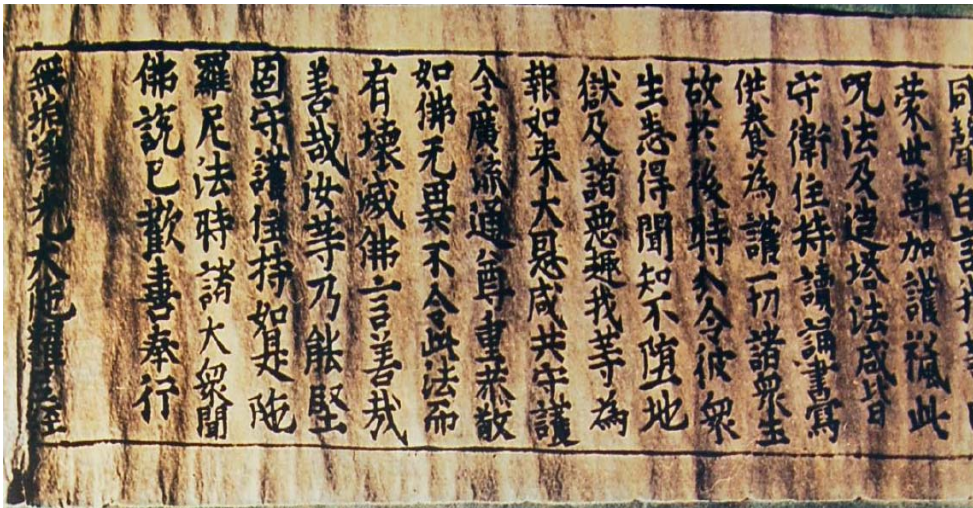 同聲白言我等
蒙世尊加護授此
呪法及造塔法咸皆
守衛住持讀誦書寫
供養為護一切諸衆生
故扵後時分令彼衆
生悉得聞知不墮地
獄及諸惡趣我等為
報如来大恩咸共守護
令廣流通尊重恭敬
如佛无異不令此法而
有壞滅佛言善哉
善哉汝等乃能堅
固守護住持如是陁
羅尼法時諸大衆聞
佛說已歡喜奉行
無垢淨光大陁羅尼經